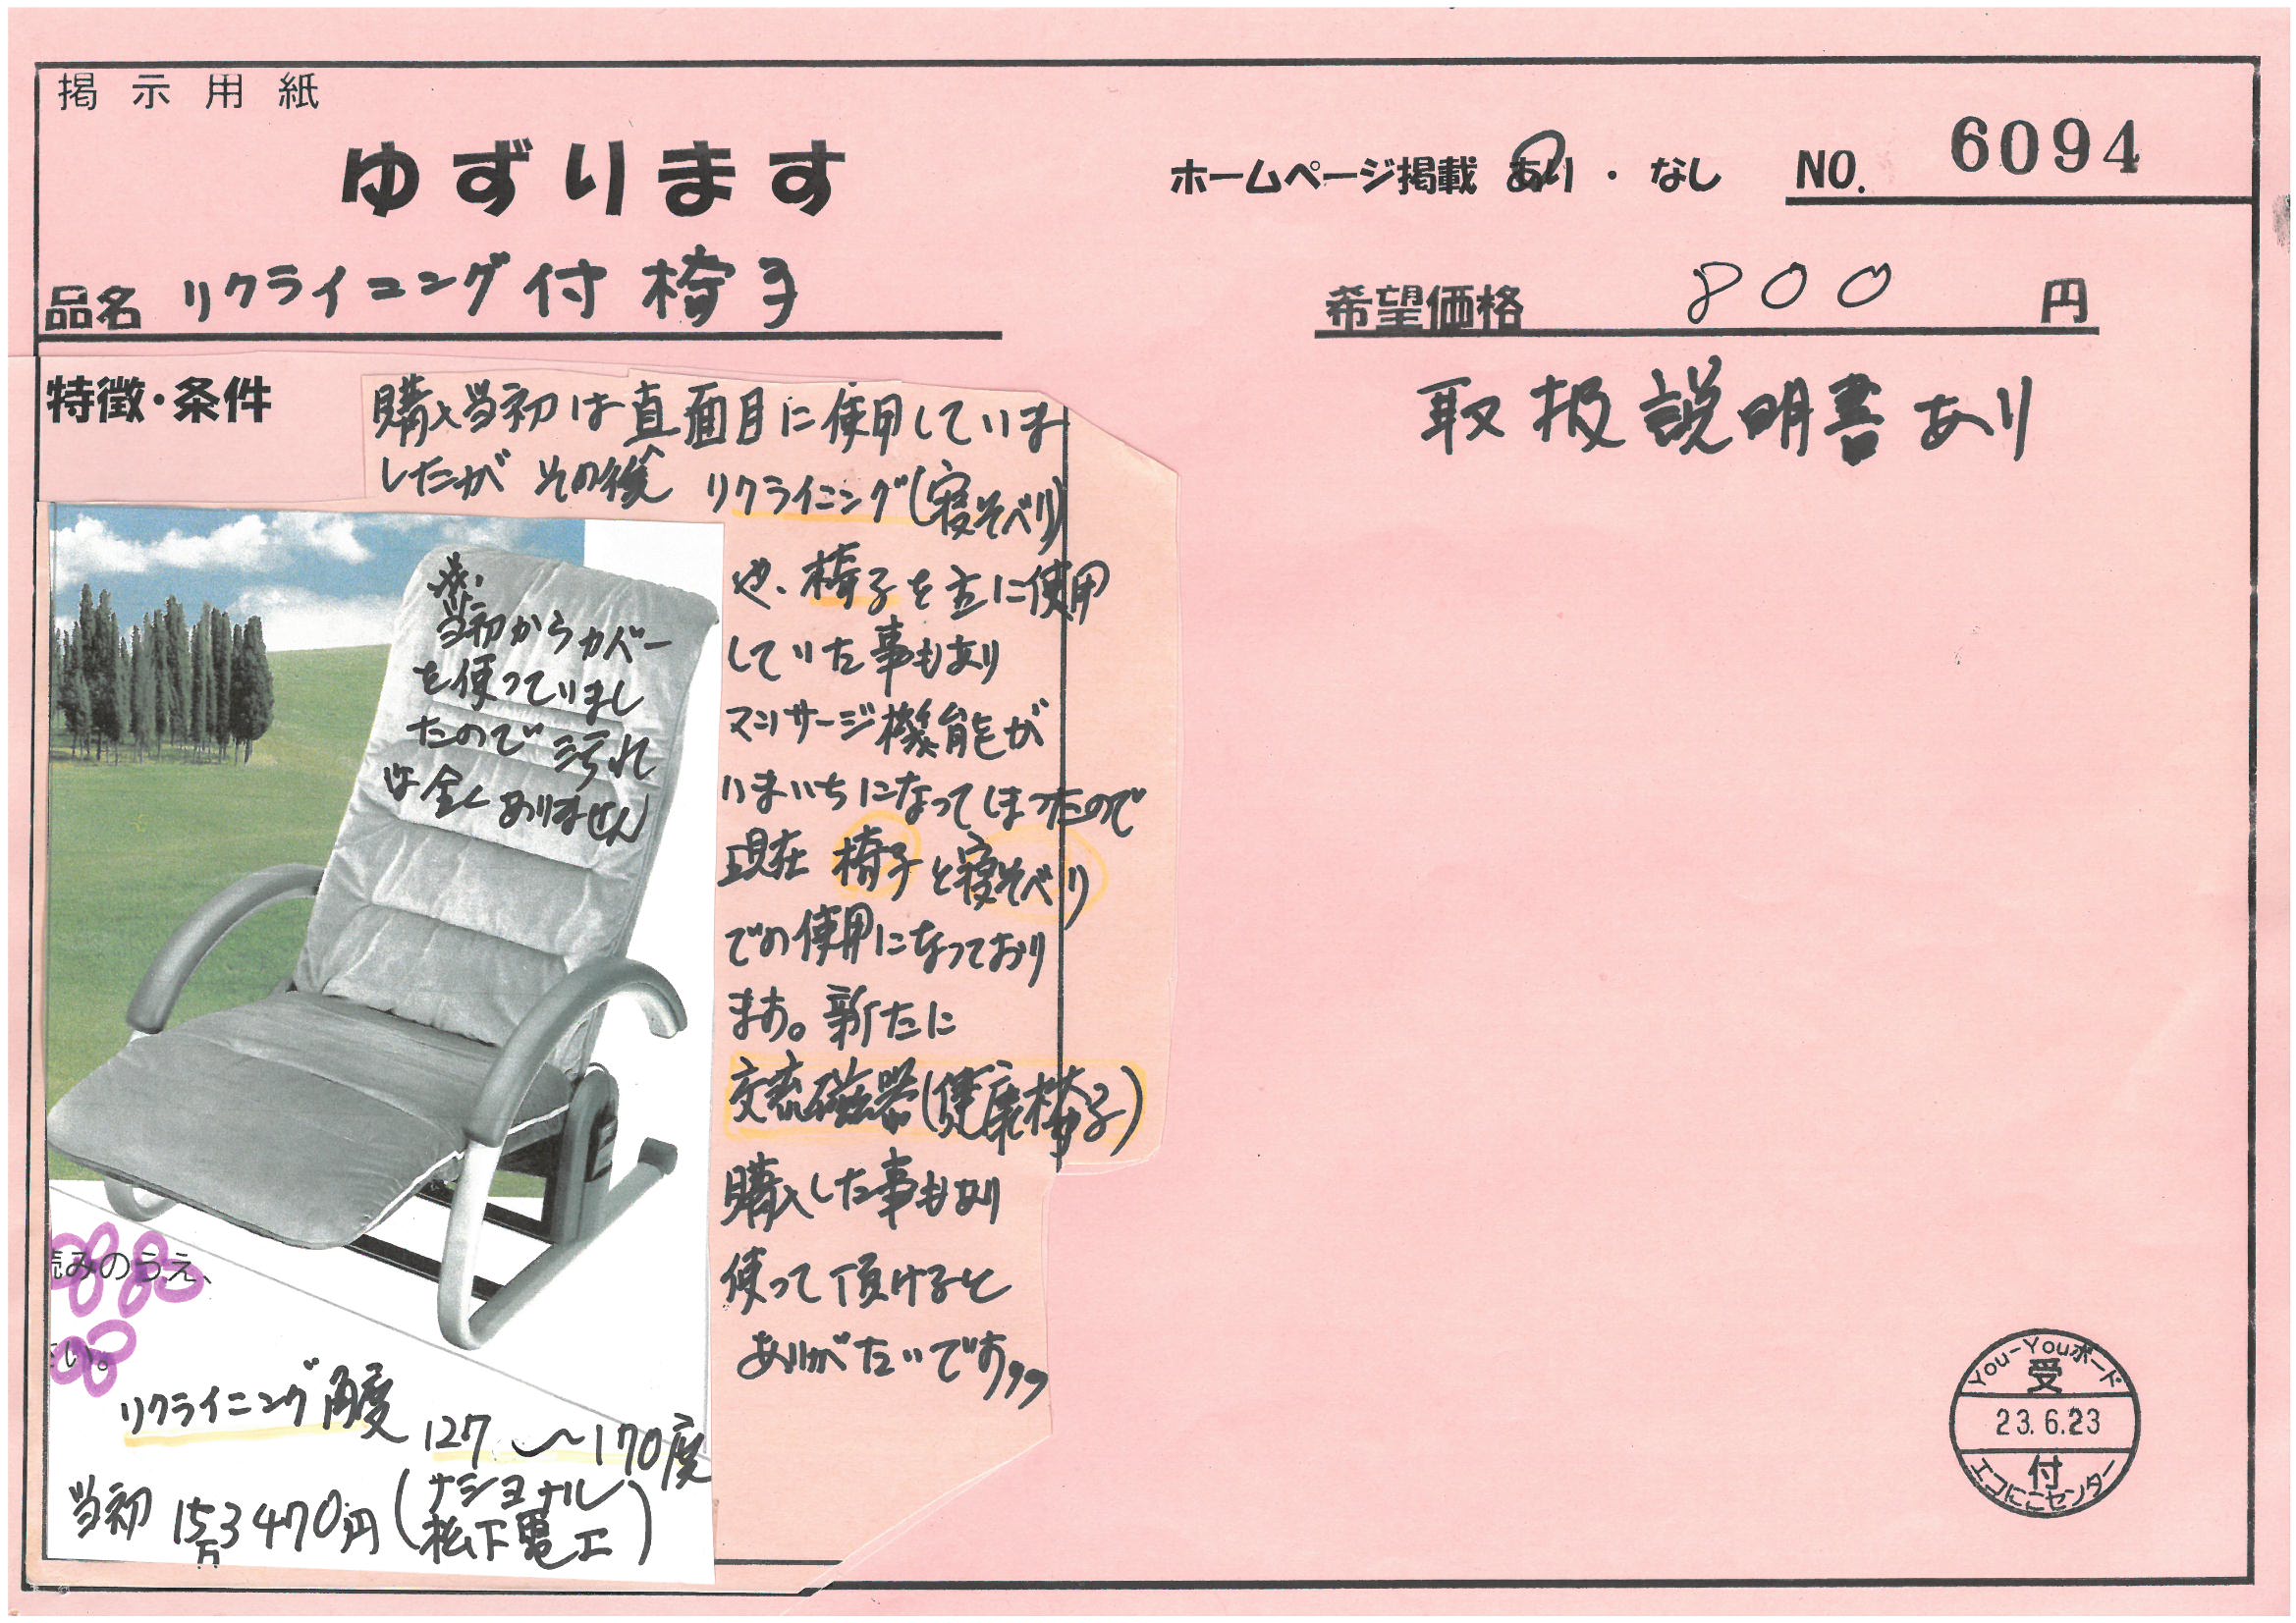 掲示用紙
ゆずります
ホームページ掲載 あり・なし NO. 6094
品名 リクライニング付椅子
希望価格 800 円
特徴・条件
取扱説明書あり
購入当初は真面目に使用していま
したが その後 リクライニング(寝そべり)
や、椅子を主に使用
していた事もあり
マッサージ機能が
いまいちになってしまったので
現在 椅子と寝そべり
での使用になっており
ます。新たに
交流磁器(健康椅子)
購入した事もあり
使って頂けると
ありがたいです,,,
※.
当初からカバー
を使っていまし
たので 汚れ
は全くありません
読みのうえ、
い。
リクライニング角度 127〜170度
当初 15万3470円(ナショナル
松下電工)
You-Youボード
受
23.6.23
付
エコにこセンター